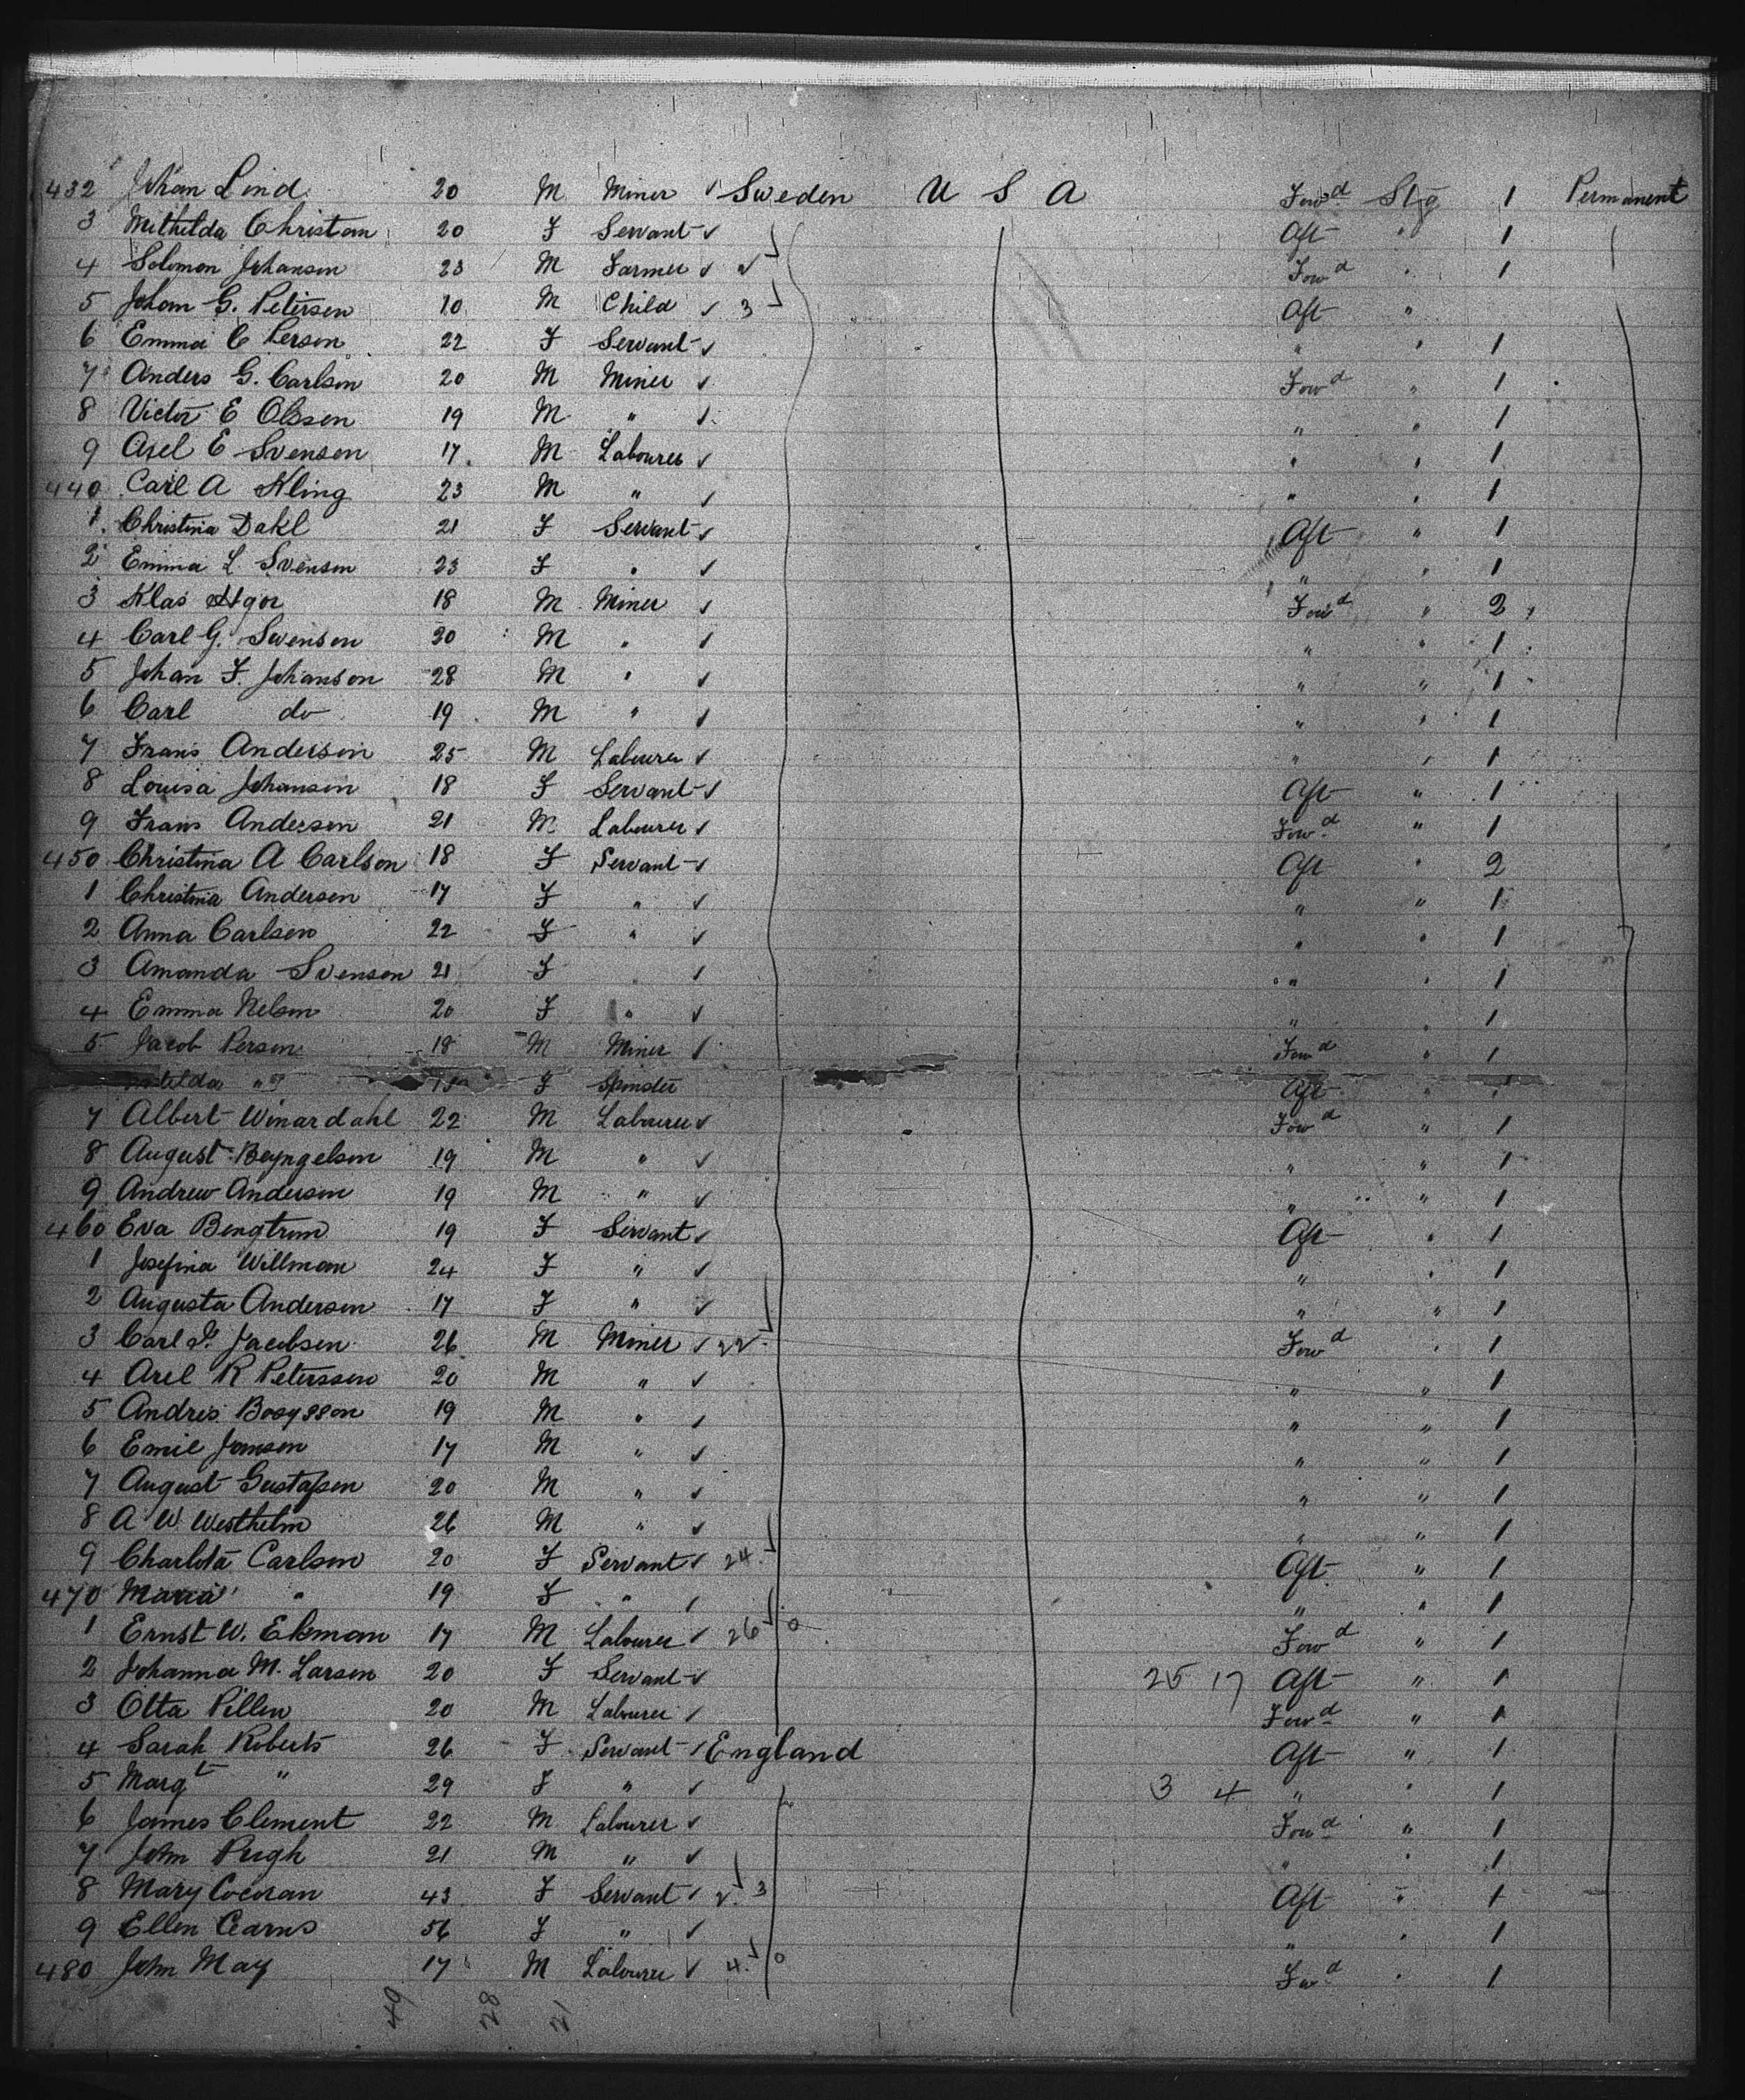 432 Johan Lind 20 M Miner ✓ Sweden U S A Fow^d Stg 1 Permanent
3 Mathilda Christan 20 F Servant ✓ Aft " 1
4 Solomon Johanson 23 M Farmer ✓ Fow^d " 1
5 Johan G. Peterson 10 M Child ✓ 3 Aft "
6 Emma C Person 22 F Servant ✓ " " 1
7 Anders G. Carlson 20 M Miner ✓ Fow^d " 1
8 Victor E Olsson 19 M " ✓ " " 1
9 Axel E Svenson 17 M Labourer ✓ " " 1
440 Carl A Kling 23 M " ✓ " " 1
1 Christina Dahl 21 F Servant ✓ Aft " 1
2 Emma L. Svenson 23 F " ✓ " " 1
3 Klas 18 M Miner ✓ Fow^d " 2
4 Carl G. Swenson 20 M " ✓ " " 1
5 Johan F. Johanson 28 M " ✓ " " 1
6 Carl do 19 M " ✓ " " 1
7 Frans Anderson 25 M Labourer ✓ " " 1
8 Louisa Johanson 18 F Servant ✓ Aft " 1
9 Frans Anderson 21 M Labourer ✓ Fow^d " 1
450 Christina A Carlson 18 F Servant ✓ Aft " 2
1 Christina Anderson 17 F " ✓ " " 1
2 Anna Carlson 22 F " ✓ " " 1
3 Amanda Svenson 21 F " ✓ " " 1
4 Emma Nelson 20 F " ✓ " " 1
5 Jacob Person 18 M Miner ✓ Fow^d " 1
" F Spinster Aft "
7 Albert Winardahl 22 M Labourer ✓ Fow^d " 1
8 August 19 M " ✓ " " 1
9 Andrew Anderson 19 M " ✓ " " 1
460 Eva Bengtrom 19 F Servant ✓ Aft " 1
1 Josefina Willman 24 F " ✓ " " 1
2 Augusta Anderson 17 F " ✓ " " 1
3 Carl Jacobsen 26 M Miner ✓ 22 Fow^d " 1
4 Axel R Petersson 20 M " ✓ " " 1
5 Andres 19 M " ✓ " " 1
6 Emil Jonson 17 M " ✓ " " 1
7 August Gustafson 20 M " ✓ " " 1
8 A W Westhelm 26 M " ✓ " " 1
9 Charlota Carlson 20 F Servant ✓ 24 Aft " 1
470 Maria " 19 F " ✓ " " 1
1 Ernst W. Ekman 17 M Labourer ✓ 26 0 Fow^d " 1
2 Johanna M. Larson 20 F Servant ✓ 25 17 Aft " 1
3 Otta Pillen 20 M Labourer ✓ Fow^d " 1
4 Sarah Roberts 26 F Servant ✓ England Aft " 1
5 Marg^t " 29 F " ✓ 3 4 " " 1
6 James Clement 22 M Labourer ✓ Fow^d " 1
7 John Pugh 21 M " ✓ " " 1
8 Mary Cocoran 43 F Servant ✓ 2 3 Aft " 1
9 Ellen Cearns 56 F " ✓ " " 1
480 John May 17 M Labourer ✓ 4 0 Fow^d " 1
49 28 21